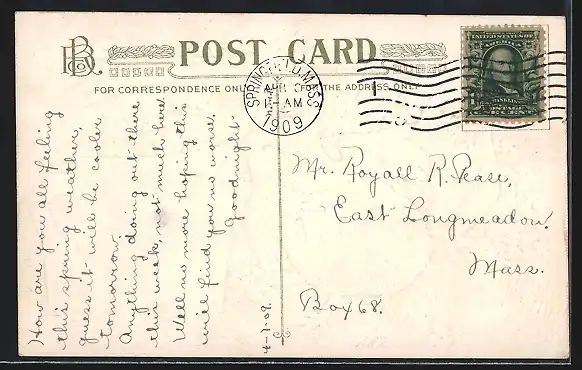 POST CARD
FOR CORRESPONDENCE ONLY
FOR THE ADDRESS ONLY
SPRINGFIELD, MASS.
APR
AM
1909
UNITED STATES OF
AMERICA
FRANKLIN
POSTAGE
How are you all feeling
this spring weather,
guess it will be cooler
tomorrow.
Anything doing out there
this week, not much here
Well no more hoping this
will find you no worse.
Goodnight
4-1-09.
Mr. Royall R. Pease,
East Longmeadow.
Mass.
Box 68.